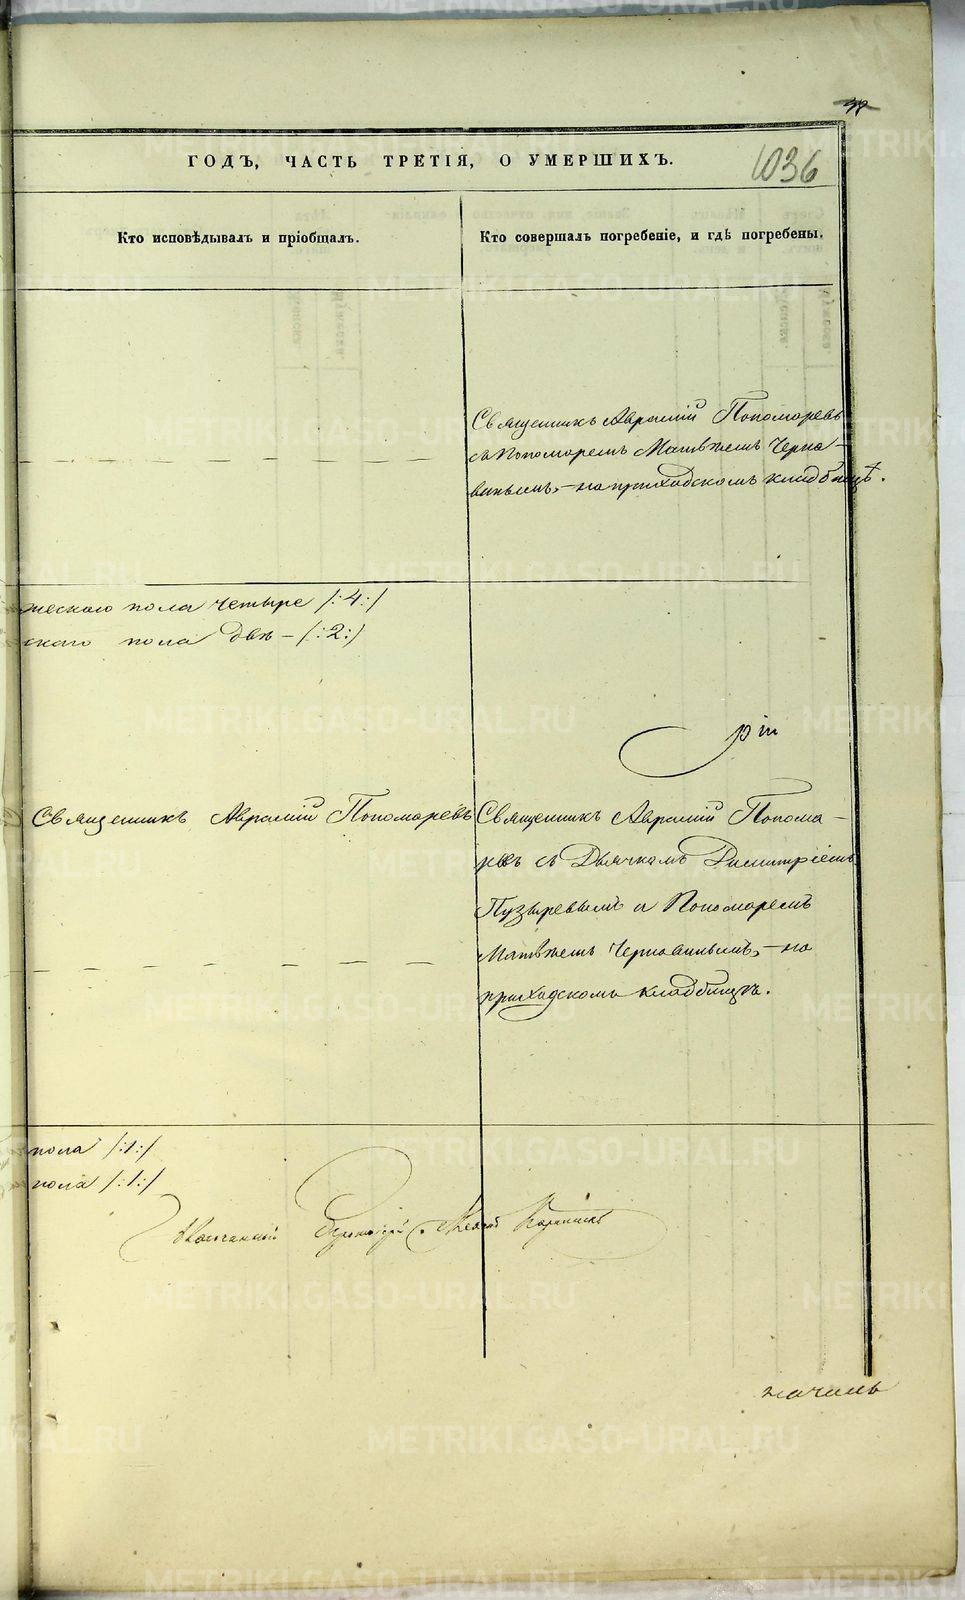 ГОДЪ, ЧАСТЬ ТРЕТІЯ, О УМЕРШИХЪ.
1036
Кто исповѣдывалъ и пріобщалъ.
Кто совершалъ погребеніе, и гдѣ погребены.
Священникъ Аврамій Пономаревъ
съ Пономаремъ Матвѣемъ Черна-
виным, - на приходскомъ кладбищѣ.
жескаго пола четыре /:4:/
скаго пола двѣ - /:2:/
Священникъ Аврамій Пономаревъ
Священникъ Аврамій Понома-
ревъ съ Дьячкомъ Димитріемъ
Пузыревымъ и Пономаремъ
Матвѣемъ Чернавинымъ, - на
приходскомъ кладбищѣ.
пола /:1:/
пола /:1:/
METRIKI.GASO-URAL.RU